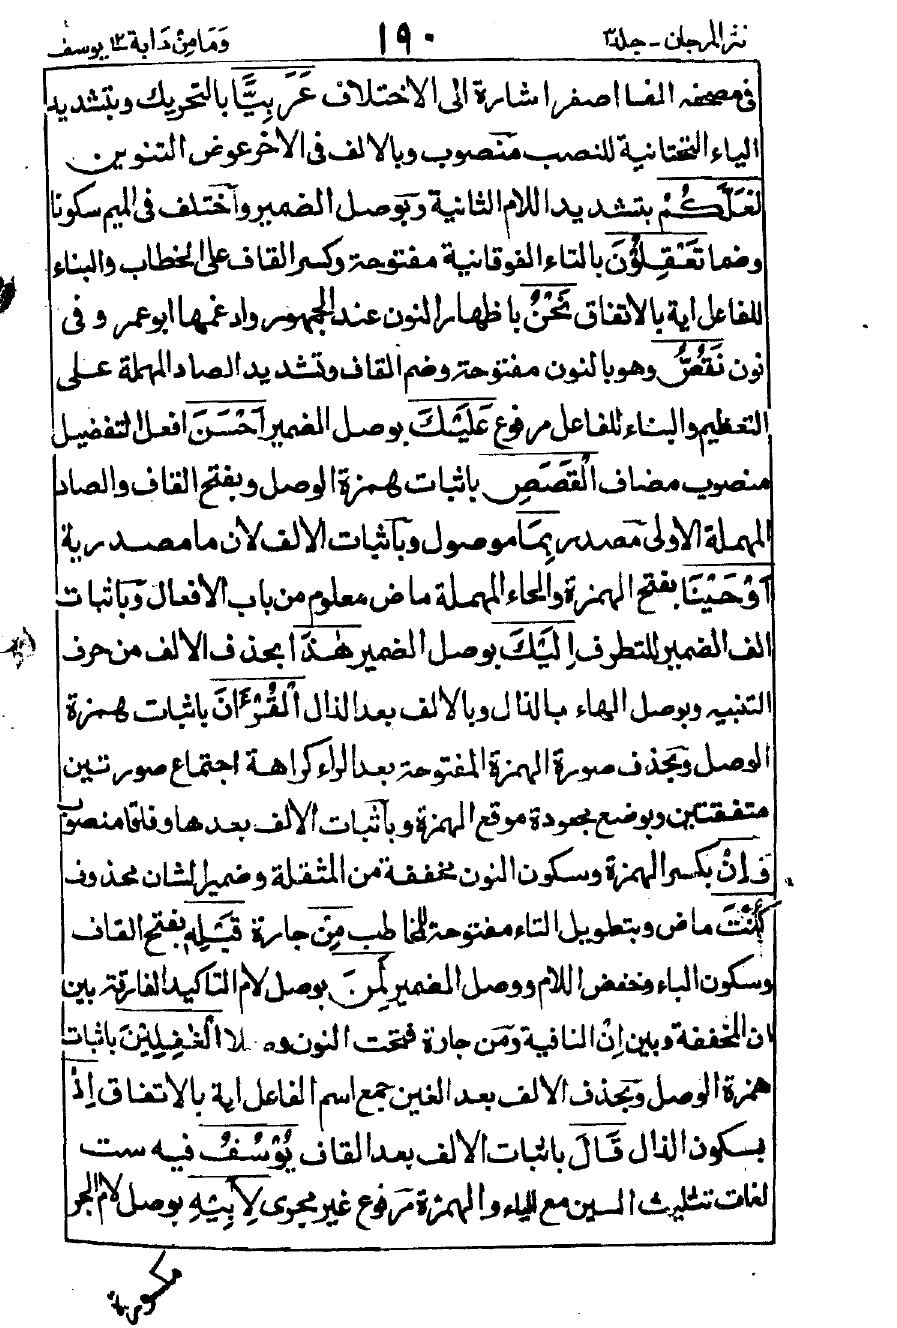 نثر المرجان - جلد ٣ ١٩٠ وما من دابة ١٢ يوسف
فى مصحفه الفا اصفر اشارة الى الاختلاف عَرَبِيًّا بالتحريك وبتشديد
الياء التحتانية للنصب منصوب وبالالف فى الاخر عوض التنوين
لَعَلَّكُمْ بتشديد اللام الثانية وبوصل الضمير واختلف فى الميم سكونا
وضما تَعْقِلُوْنَ بالتاء الفوقانية مفتوحة وكسر القاف على الخطاب والبناء
للفاعل اية بالاتفاق نَحْنُ باظهار النون عند الجمهور وادغمها ابو عمرو فى
نون نَقُصُّ وهو بالنون مفتوحة وضم القاف وتشديد الصاد المهملة على
التعظيم والبناء للفاعل مرفوع عَلَيْكَ بوصل الضمير اَحْسَنَ افعل التفضيل
منصوب مضاف الْقَصَصِ باثبات همزة الوصل وبفتح القاف والصاد
المهملة الاولى مصدر بِمَا موصول وباثبات الالف لان ما مصدرية
اَوْحَيْنَا بفتح الهمزة والحاء المهملة ماض معلوم من باب الافعال وباثبات
الف الضمير للتطرف اِلَيْكَ بوصل الضمير هٰذَا بحذف الالف من حرف
التنبيه وبوصل الهاء بالذال وبالالف بعد الذال الْقُرْءَانَ باثبات همزة
الوصل وبحذف صورة الهمزة المفتوحة بعد الراء كراهة اجتماع صورتين
متفقتين وبوضع مجعودة موقع الهمزة وباثبات الالف بعدها وفاقا منصوب
وَاِنْ بكسر الهمزة وسكون النون مخففة من المثقلة وضمير الشان محذوف
كُنْتَ ماض وبتطويل التاء مفتوحة للمخاطب مِنْ جارة قَبْلِهٖ بفتح القاف
وسكون الباء وخفض اللام ووصل الضمير لَمِنَ بوصل لام التاكيد الفارقة بين
ان المخففة وبين اِنْ النافية ومن جارة فتحت النون وصلا الْغٰفِلِيْنَ باثبات
همزة الوصل وبحذف الالف بعد الغين جمع اسم الفاعل اية بالاتفاق اِذْ
بسكون الذال قَالَ باثبات الالف بعد القاف يُوْسُفُ فيه ست
لغات تثليث السين مع الياء والهمزة مرفوع غير مجرى لِاَبِيْهِ بوصل لام الجر
مكسورة